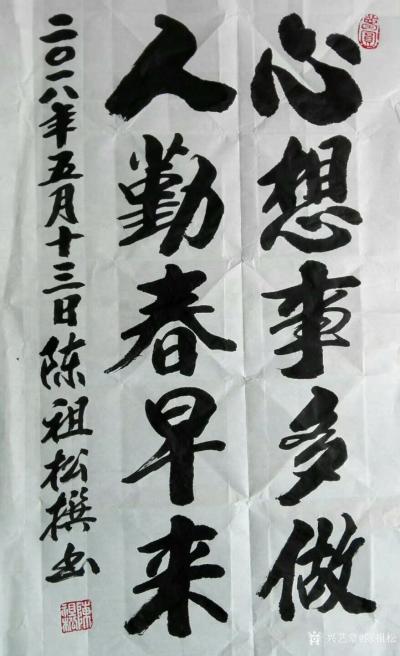 心想事多做
人勤春早来
二〇一八年五月十三日陈祖松撰书
兴艺堂@陈祖松